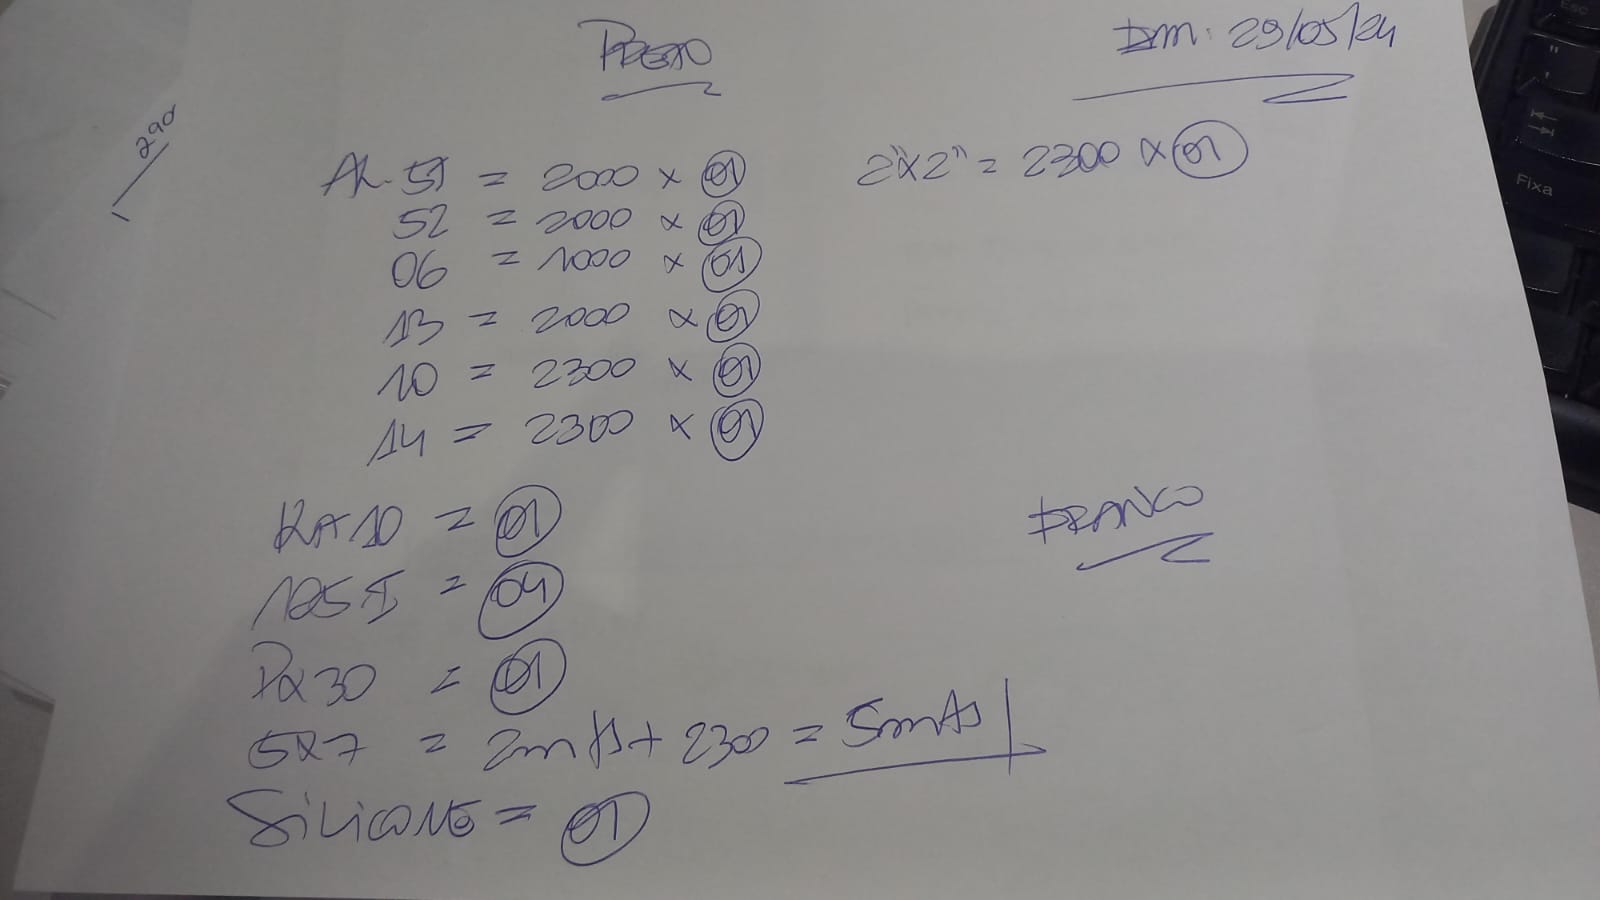 PRETO
EM: 29/05/24
290
AL. 51 = 2000 x 01
2"x2" = 2300 x 01
52 = 2000 x 01
06 = 1000 x 01
13 = 2000 x 01
10 = 2300 x 01
14 = 2300 x 01
BRANCO
125 I = 04
PX30 = 01
5x7 = 2mts + 2300 = 5mts
SILICONE = 01
Esc
Fixa